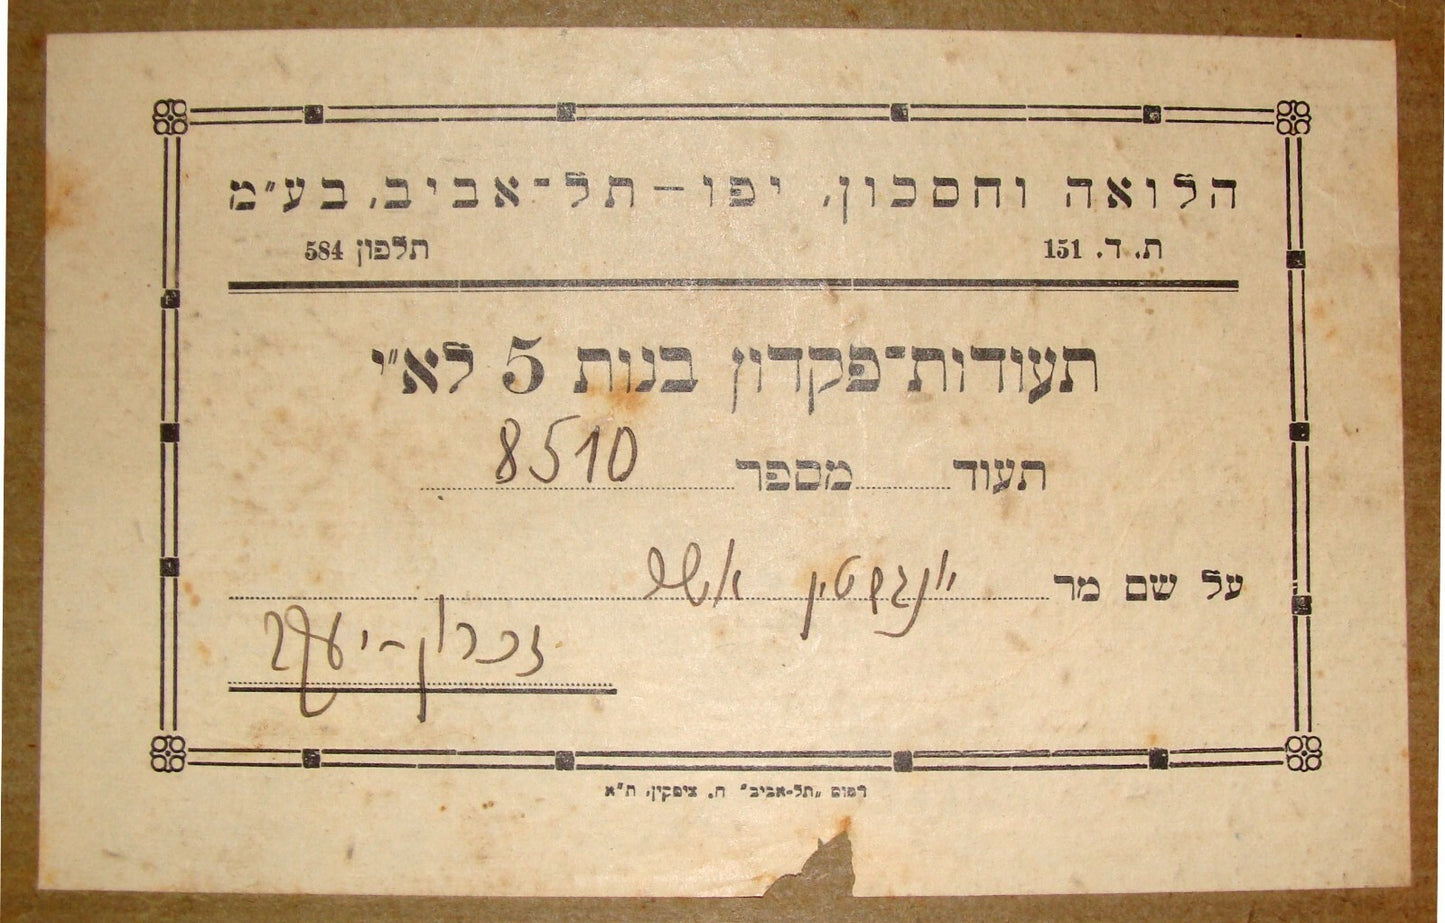 הלואה וחסכון, יפו — תל־אביב, בע״מ
ת. ד. 151 תלפון 584
תעודות־פקדון בנות 5 לא״י
תעוד מספר 8510
על שם מר ינגשטין אשר
זכרון-יעקב
דפוס „תל-אביב״ ח. ציפקין, ת״א